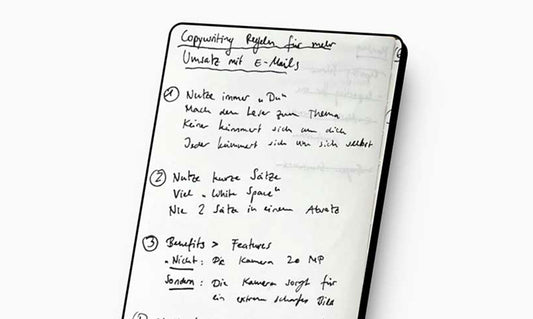 Copywriting Regeln für mehr
Umsatz mit E-Mails
1 Nutze immer „Du“
Mach den Leser zum Thema
Keiner kümmert sich um dich
Jeder kümmert sich um sich selbst
2 Nutze kurze Sätze
Viel „White Space“
Nie 2 Sätze in einem Absatz
3 Benefits > Features
„Nicht: Die Kamera 20 MP
Sondern: Die Kamera sorgt für
ein extrem scharfes Bild